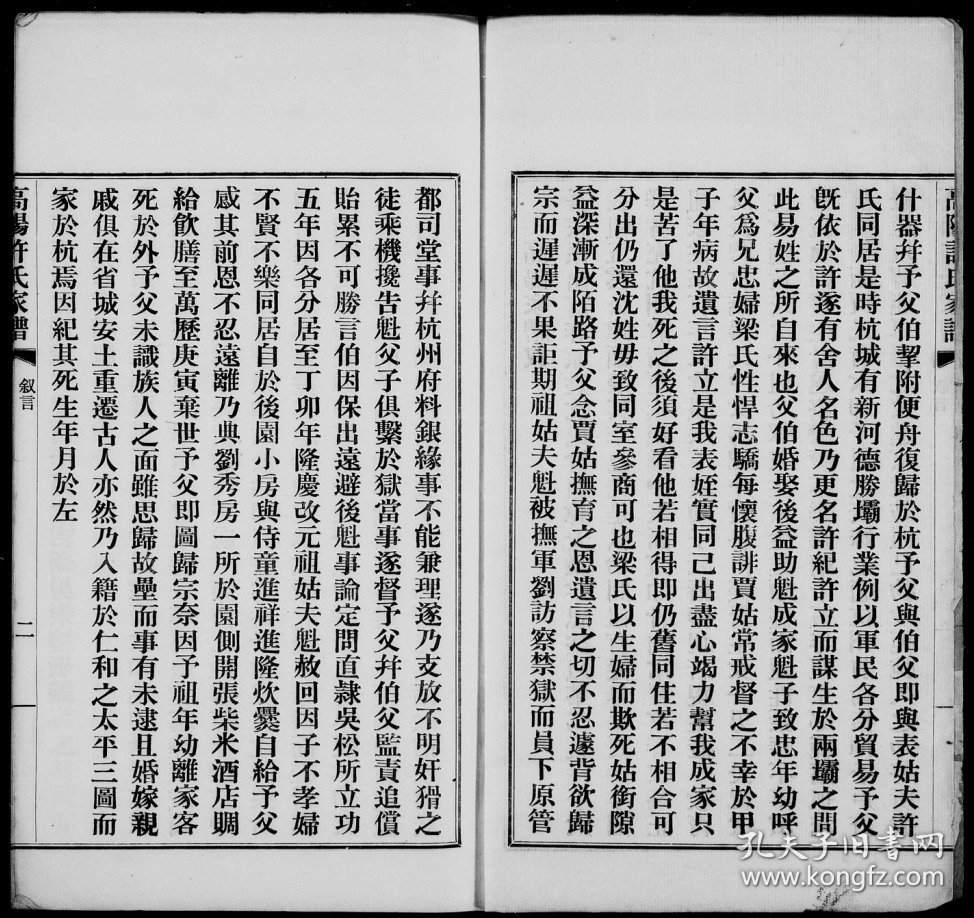 什器幷予父伯挈附便舟復歸於杭予父與伯父即與表姑夫許
氏同居是時杭城有新河德勝壩行業例以軍民各分貿易予父
旣依於許遂有舍人名色乃更名許紀許立而謀生於兩壩之間
此易姓之所自來也父伯婚娶後益助魁成家魁子致忠年幼呼
父爲兄忠婦梁氏性悍志驕每懷腹誹賈姑常戒督之不幸於甲
子年病故遺言許立是我表姪實同己出盡心竭力幫我成家只
是苦了他我死之後須好看他若相得即仍舊同住若不相合可
分出仍還沈姓毋致同室參商可也梁氏以生婦而欺死姑銜隙
益深漸成陌路予父念賈姑撫育之恩遺言之切不忍遽背欲歸
宗而遲遲不果詎期祖姑夫魁被撫軍劉訪察禁獄而員下原管
都司堂事幷杭州府料銀緣事不能兼理遂乃支放不明奸猾之
徒乘機攙告魁父子俱繫於獄當事遂督予父幷伯父監責追償
貽累不可勝言伯因保出遠避後魁事論定問直隷吳松所立功
五年因各分居至丁卯年隆慶改元祖姑夫魁赦回因子不孝婦
不賢不樂同居自於後園小房與侍童進祥進隆炊爨自給予父
感其前恩不忍遠離乃典劉秀房一所於園側開張柴米酒店賙
給飮膳至萬歷庚寅棄世予父即圖歸宗奈因予祖年幼離家客
死於外予父未識族人之面雖思歸故壘而事有未逮且婚嫁親
戚俱在省城安土重遷古人亦然乃入籍於仁和之太平三圖而
家於杭焉因紀其死生年月於左
高陽許氏家譜
叙言
二
孔夫子旧书网
www.kongfz.com